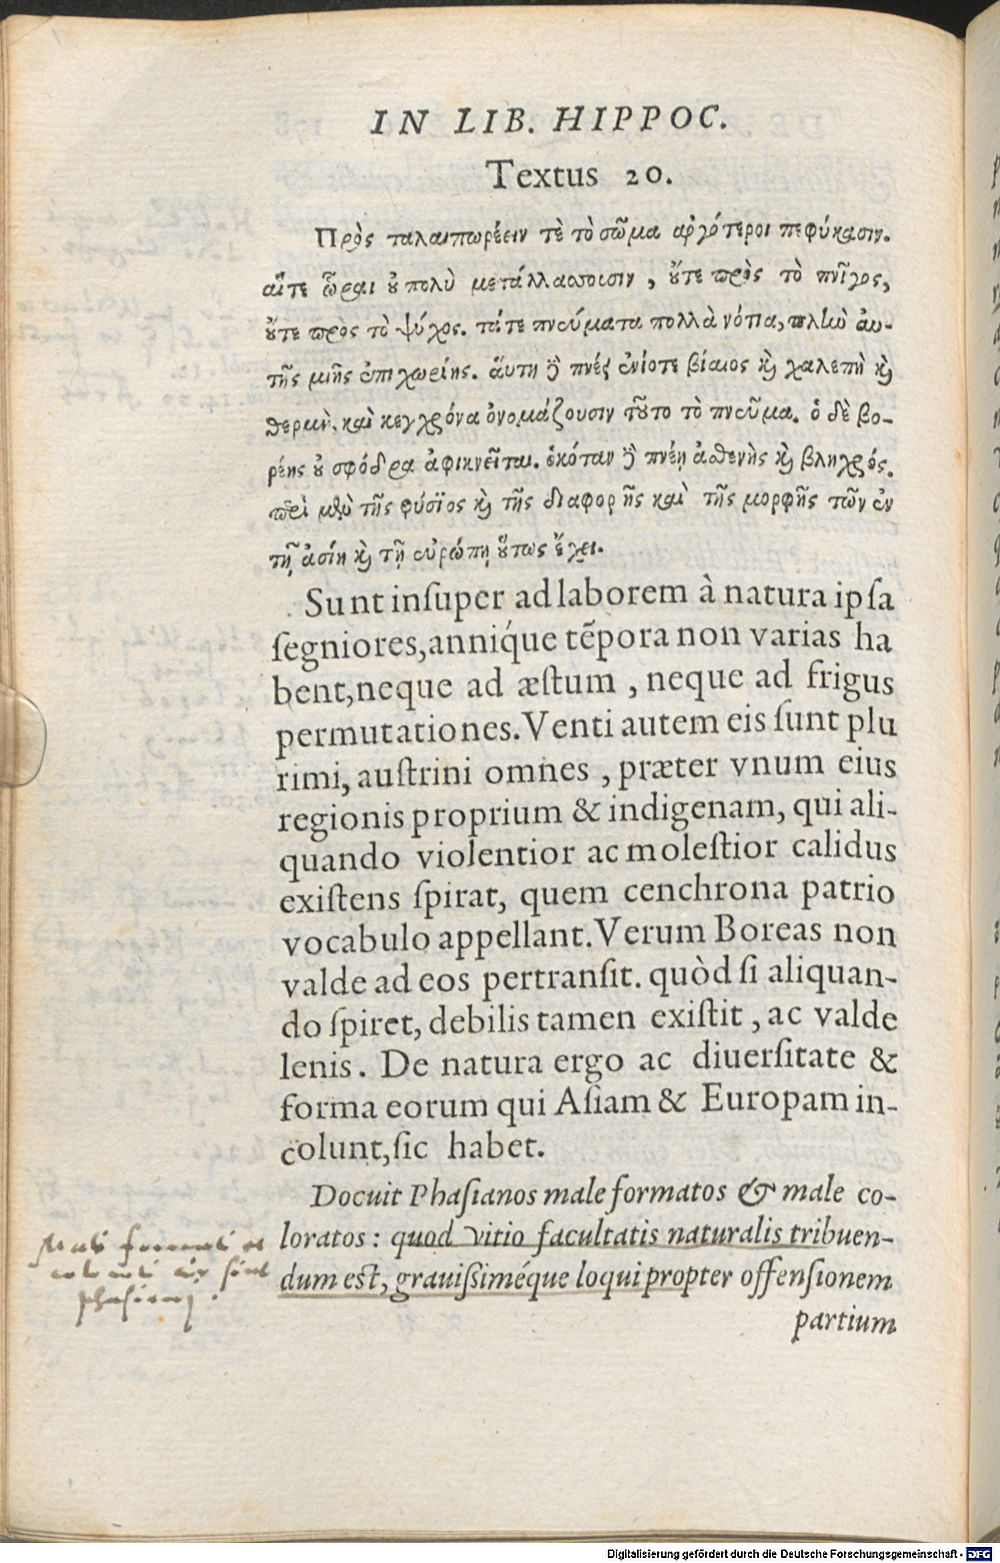 IN LIB. HIPPOC.
Textus 20.
Πρὸς ταλαιπωρέειν τὲ τὸ σῶμα ἀργότεροι πεφύκασιν.
αἵτε ὧραι ȣ̓ πολὺ μετάλλασσουσιν, ȣ̓́τε πρὸς τὸ πνῖγος,
ȣ̓́τε πρὸς τὸ ψύχος. τάτε πνεύματα πολλὰ νότια, πλὴν αὐ-
τῆς μιῆς ἐπιχωρίης. ἅυτη δὲ πνέει ἐνίοτε βίαιος κ̀ χαλεπὴ κ̀
θερμὴ. καὶ κεγχρόνα ὀνομάζουσιν τȣ͂το τὸ πνεῦμα. ὁ δὲ βο-
ρέης ȣ̓ σφόδρα ἀφικνεῖται. ὁκόταν δὲ πνέῃ ἀσθενὴς κ̀ βληχρός.
περὶ μὲν τῆς φύσϊος κ̀ τῆς διαφορῆς καὶ τῆς μορφῆς τῶν ἐν
τῇ ἀσίῃ κ̀ τῇ εὐρώπῃ ȣ̔́τως ἔχει.
Sunt insuper ad laborem à natura ipsa
segniores, anníque tẽpora non varias ha
bent, neque ad æstum, neque ad frigus
permutationes. Venti autem eis sunt plu
rimi, austrini omnes, præter vnum eius
regionis proprium & indigenam, qui ali-
quando violentior ac molestior calidus
existens spirat, quem cenchrona patrio
vocabulo appellant. Verum Boreas non
valde ad eos pertransit. quòd si aliquan-
do spiret, debilis tamen existit, ac valde
lenis. De natura ergo ac diuersitate &
forma eorum qui Asiam & Europam in-
colunt, sic habet.
Docuit Phasianos male formatos & male co-
loratos: quod vitio facultatis naturalis tribuen-
dum est, grauissiméque loqui propter offensionem
partium
Mali formati et
colorati cur sint
phasiani.
Digitalisierung gefördert durch die Deutsche Forschungsgemeinschaft - DFG